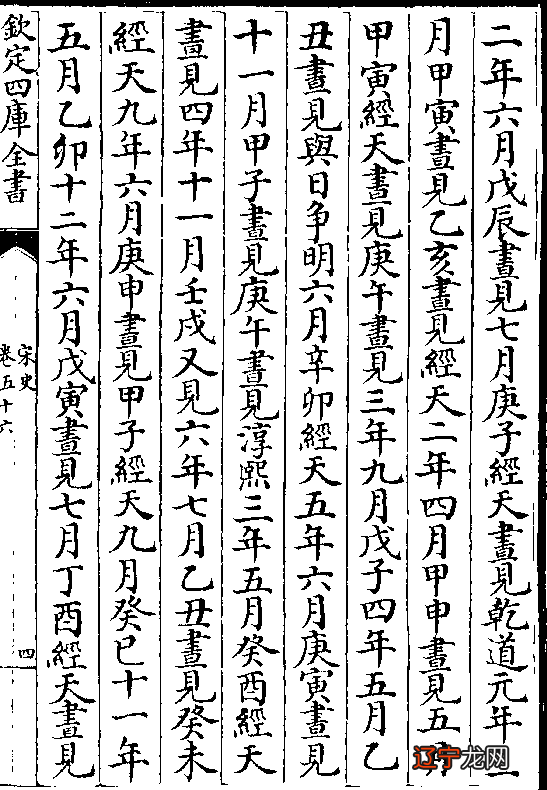 二年六月戊辰晝見七月庚子經天晝見乾道元年
月甲寅晝見乙亥晝見經天二年四月甲申晝見五月
甲寅經天晝見庚午晝見三年九月戊子四年五月乙
丑晝見與日争明六月辛卯經天五年六月庚寅晝見
十一月甲子晝見庚午晝見淳熙三年五月癸酉經天
晝見四年十一月壬戌又見六年七月乙丑晝見癸未
經天九年六月庚申晝見甲子經天九月癸巳十一年
五月乙卯十二年六月戊寅晝見七月丁酉經天晝見
欽定四庫全書
宋史
卷五十六
四
辽宁龙网